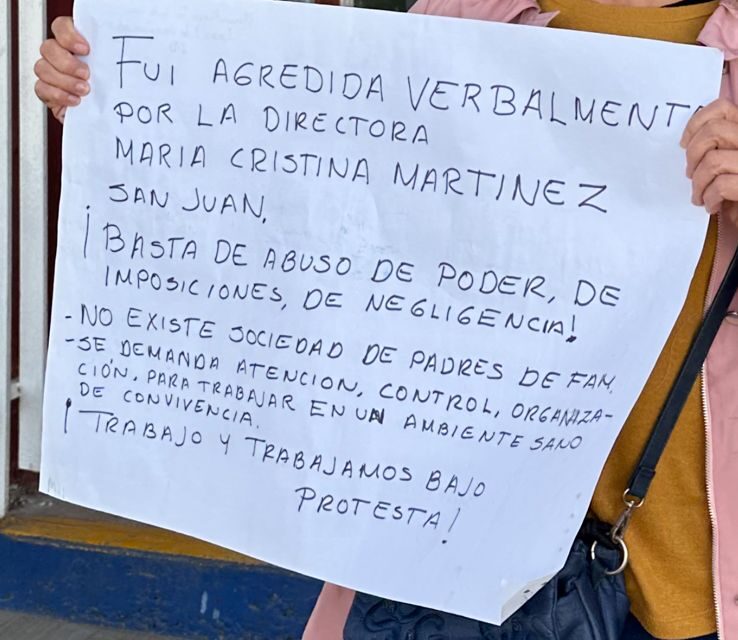 FUI AGREDIDA VERBALMENT
POR LA DIRECTORA
MARIA CRISTINA MARTINEZ
SAN JUAN,
¡BASTA DE ABUSO DE PODER, DE
IMPOSICIONES, DE NEGLIGENCIA!
-NO EXISTE SOCIEDAD DE PADRES DE FAM.
-SE DEMANDA ATENCION, CONTROL, ORGANIZA-
CIÓN, PARA TRABAJAR EN UN AMBIENTE SANO
DE CONVIVENCIA.
¡TRABAJO Y TRABAJAMOS BAJO
PROTESTA!